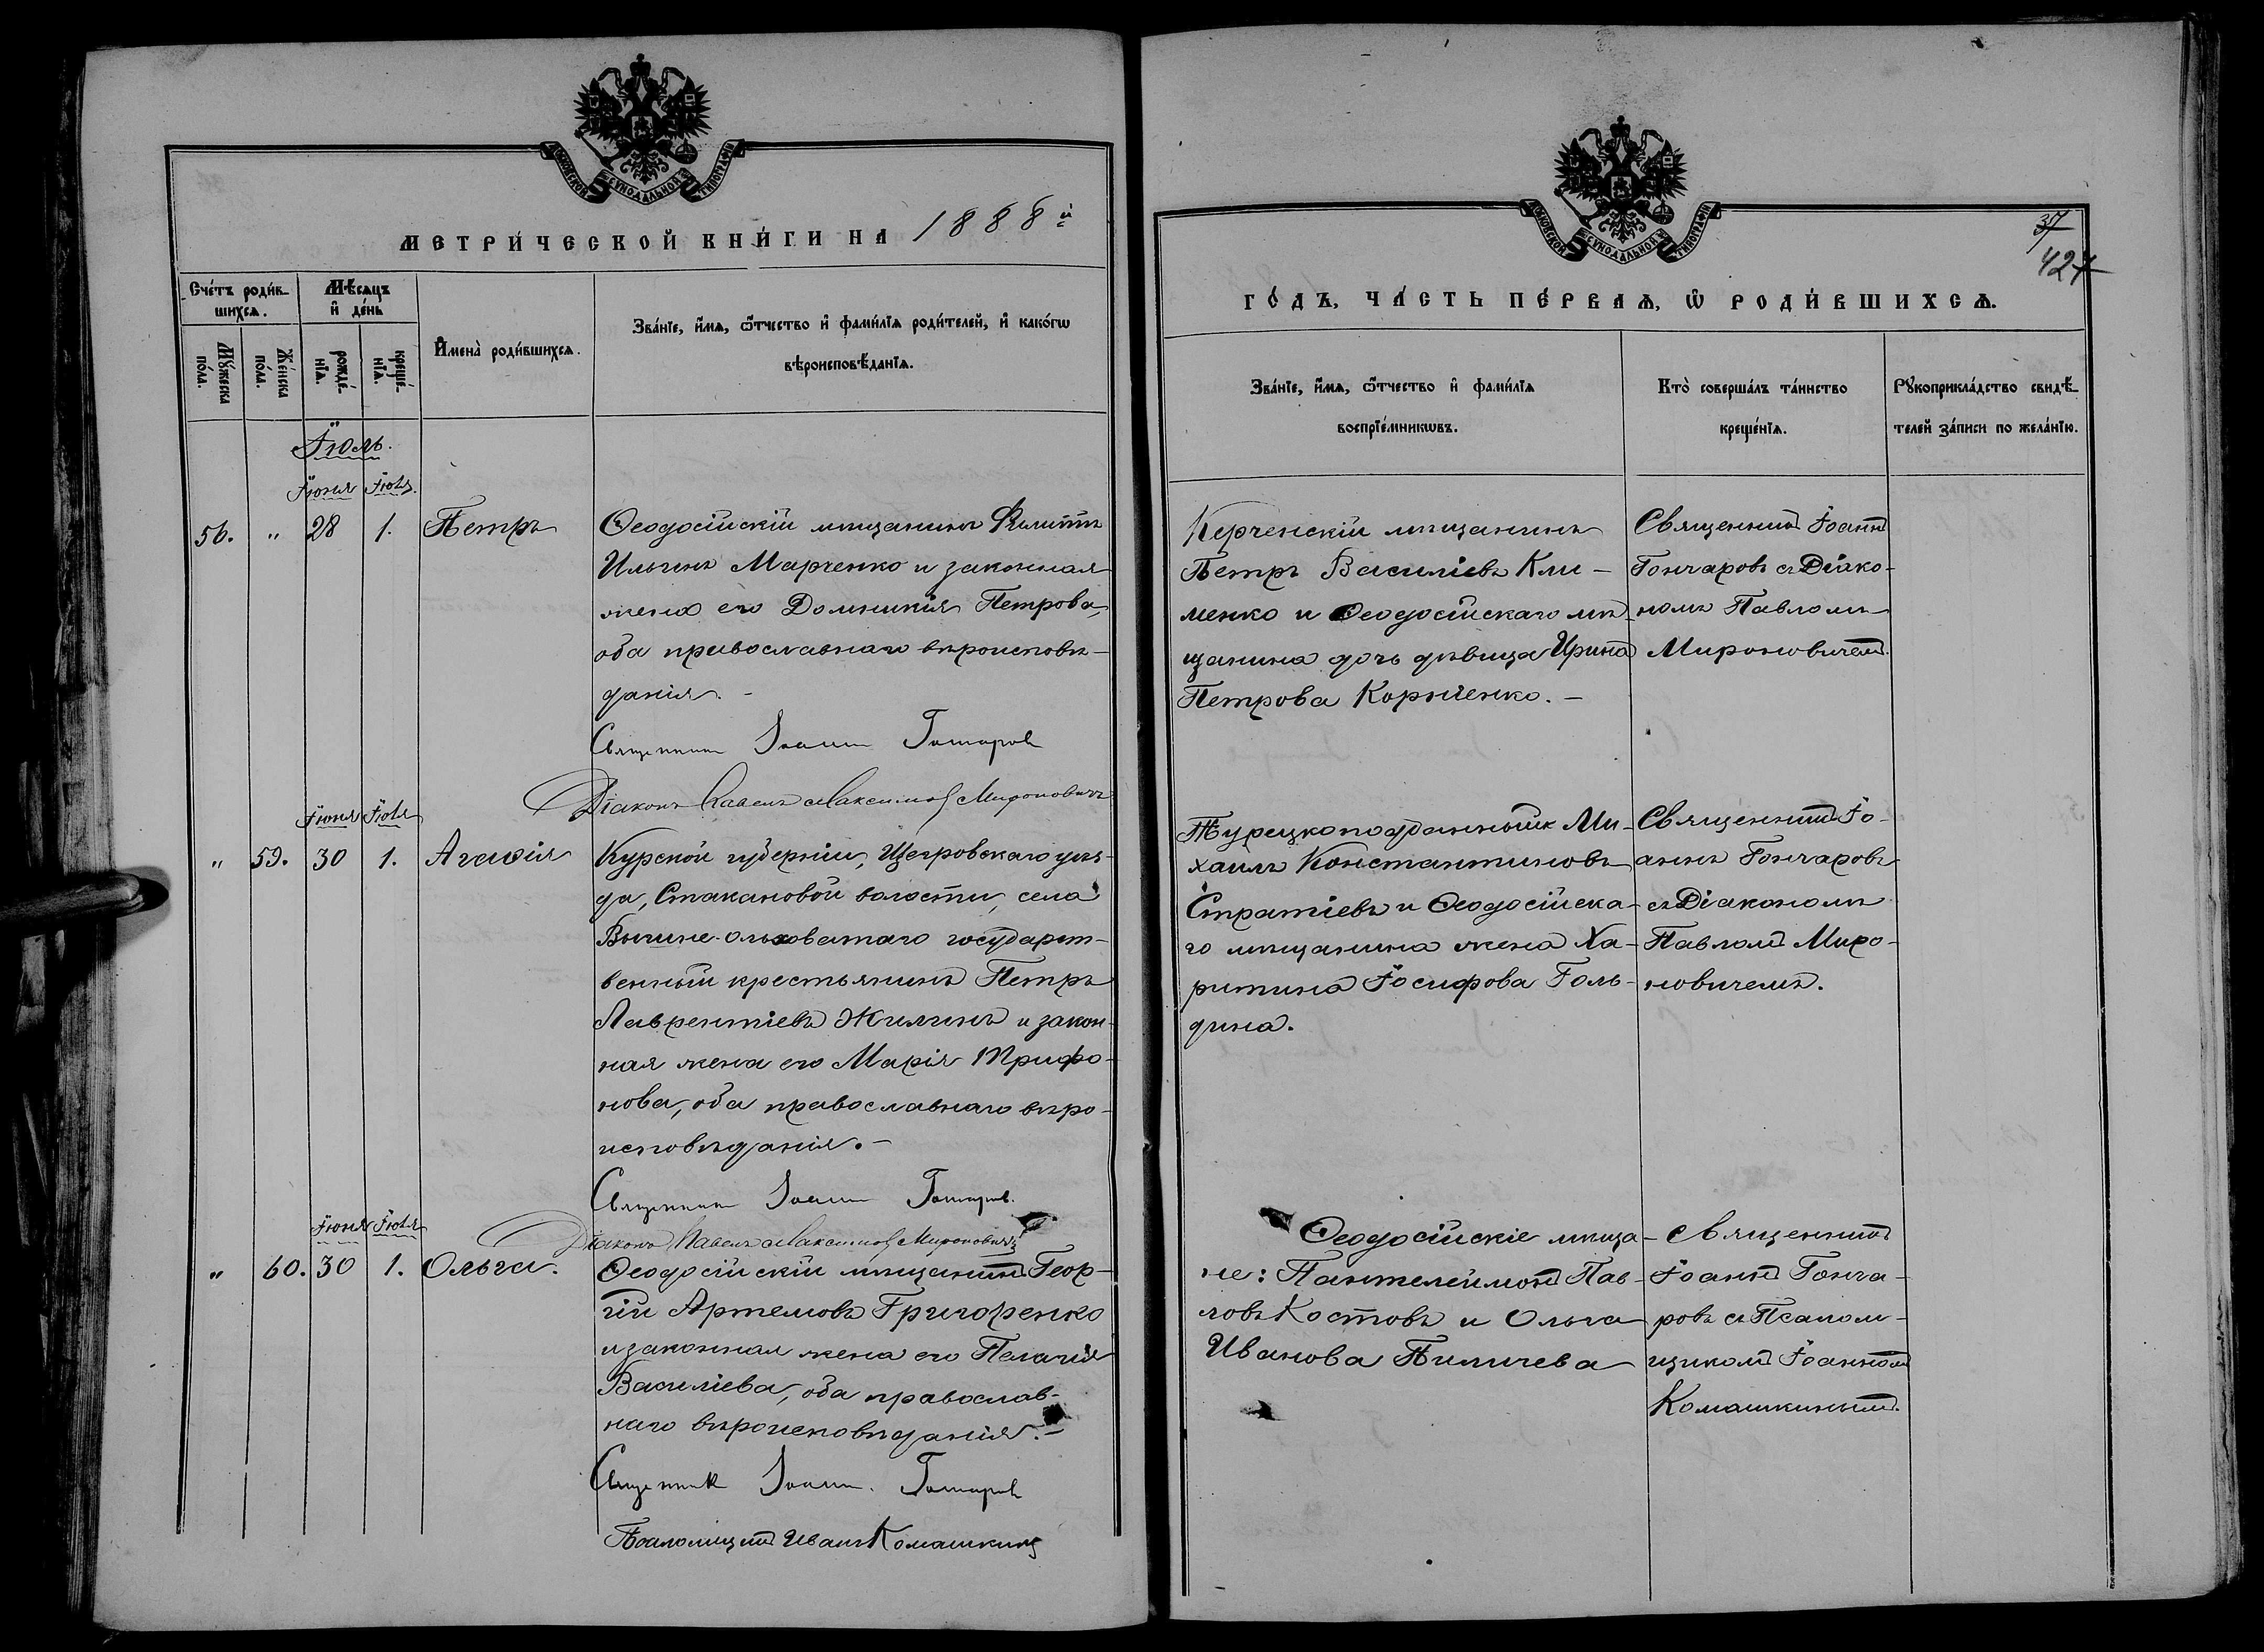 МОСКОВСКОЙ СѴНОДАЛЬНОЙ ТИПОГРАФІИ
МЕТРИ́ЧЕСКОЙ КНИ́ГИ НА 1888й
Сче́тъ роди́в-
шихся.
Мѣ́сяцъ
и де́нь
Мꙋ́жеска
по́ла.
Же́нска
по́ла.
рожде́-
нїѧ.
креще́-
нїѧ.
И҆мена̀ роди́вшихсѧ.
Зва́нїе, и҆́мѧ, ѻ҆́тчество и҆ фами́лїѧ роди́телей, и҆ како́гѡ
вѣроисповѣ́данїѧ.
Іюль.
Іюня Іюля.
56. " 28 1. Петръ
Ѳеодосійскій мѣщанинъ Филиппъ
Ильинъ Марченко и законная
жена его Домникія Петрова,
оба православнаго вѣроисповѣ-
данія. -
Священникъ Іоаннъ Гончаровъ
Діаконъ Павелъ Максимовъ Мироновичъ
Іюня Іюля
" 59. 30 1. Агаѳія
Курской губерніи, Щигровскаго уѣз-
да, Стакановой волости, села
Вышне-ольховатаго государст-
венный крестьянинъ Петръ
Лаврентіевъ Жилинъ и закон-
ная жена его Марія Трифо-
нова, оба православнаго вѣро-
исповѣданія. -
Священникъ Іоаннъ Гончаровъ.
Діаконъ Павелъ Максимовъ Мироновичъ
Іюня Іюля
" 60. 30 1. Ольга.
Ѳеодосійскій мѣщанинъ Геор-
гій Артемовъ Григоренко
и законная жена его Пелагія
Василіева, оба православ-
наго вѣроисповѣданія. -
Священникъ Іоаннъ Гончаровъ
Псаломщикъ Иванъ Комашкинъ
МОСКОВСКОЙ СѴНОДАЛЬНОЙ ТИПОГРАФІИ
37
427
ГО́ДЪ, ЧА́СТЬ ПЕ́РВАѦ, Ѡ҆ РОДИ́ВШИХСѦ.
Зва́нїе, и҆́мѧ, ѻ҆́тчество и҆ фами́лїѧ
воспрїе́мникѡвъ.
Кто̀ соверша́лъ та́инство
креще́нїѧ.
Рꙋкоприкла́дство свидѣ́-
телей за́писи по жела́нїю.
Керченскій мѣщанинъ
Петръ Василіевъ Кли-
менко и Ѳеодосійскаго мѣ-
щанина дочь дѣвица Ирина
Петрова Корніенко. -
Священникъ Іоаннъ
Гончаровъ съ Діако-
номъ Павломъ
Мироновичемъ.
Турецкоподданный Ми-
хаилъ Константиновъ
Стратіевъ и Ѳеодосійска-
го мѣщанина жена Ха-
ритина Іосифова Голь-
дина.
Священникъ Іо-
аннъ Гончаровъ
съ Діакономъ
Павломъ Миро-
новичемъ.
Ѳеодосійскіе мѣща-
не: Пантелеймонъ Пав-
ловъ Костовъ и Ольга
Иванова Пиличева
Священникъ
Іоаннъ Гонча-
ровъ съ Псалом-
щикомъ Іоанномъ
Комашкинымъ.